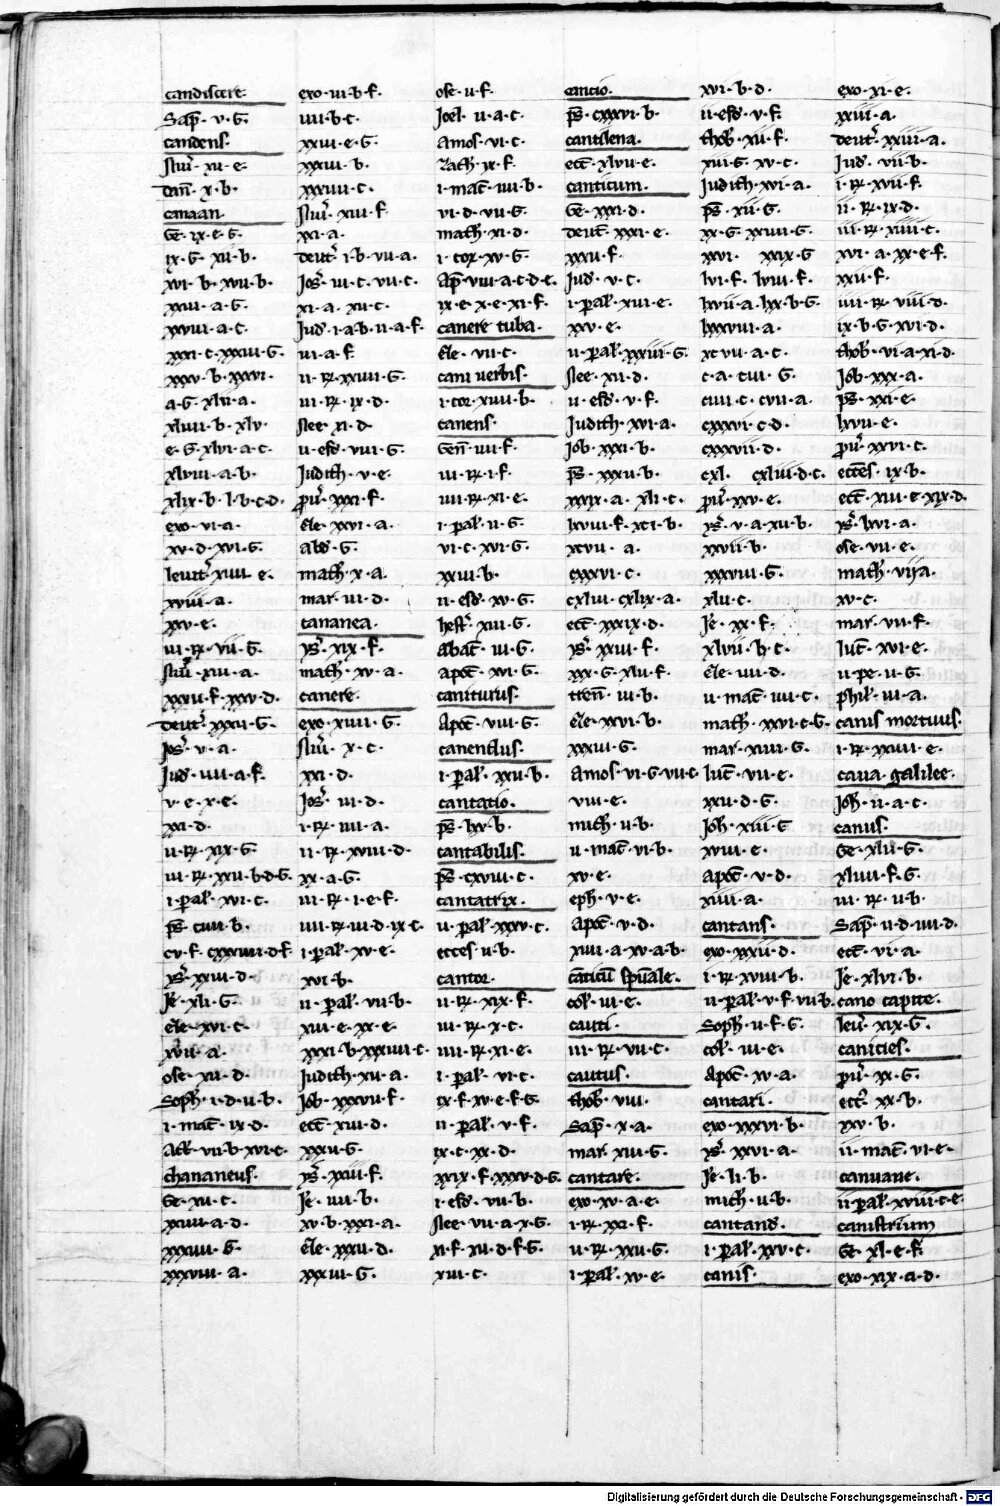 candiscere
Sap̄. v. G.
candens.
Nu͛. xi. e.
Dan̄. x. b.
canaan.
Ge. ix. e. G.
ix. G. xii. b.
xvi. b. xvii. b.
xxiii. a. G.
xxviii. a. c.
xxxi. c. xxxiii. G.
xxxv. b. xxxvi.
a. G. xlii. a.
xliiii. b. xlv.
e. G. xlvi. a. c.
xlviii. a. b.
xlix. b. l. b. c. d.
exo. vi. a.
xv. d. xvi. G.
leuit͛. xiiii. e.
xviii. a.
xxv. e.
iii. R. vii. G.
Nu͛. xiii. a.
xxxii. f. xxxv. d.
Deut͛. xxxii. G.
Jos͛. v. a.
Jud. iiii. a. f.
v. e. x. e.
xxi. d.
ii. R. xix. G.
iii. R. xxii. b. d. G.
i. pal̄. xvi. c.
ps̄. ciiii. b.
cv. f. cxxxiiii. d. f.
ys͛. xxiii. d.
Je. xli. G.
Eze. xvi. c.
xvii. a.
ose. xii. d.
Soph. i. d. ii. b.
i. mac̄. ix. d.
Act. vii. b. xvi. c.
chananeus.
Ge. xii. c.
xxiiii. a. d.
xxxiiii. G.
xxxviii. a.
exo. iii. b. f.
iiii. b. c.
xxiii. e. G.
xxxiii. b.
xxxiiii. c.
Nu͛. xiii. f.
xxi. a.
Deut͛. i. b. vii. a.
Jos͛. iii. c. vii. c.
xi. a. xii. c.
Jud. i. a. b. ii. a. f.
iii. a. f.
ii. R. xxiiii. G.
iii. R. ix. d.
Nee. xi. d.
ii. esd. viii. G.
Judith. v. e.
pu͛. xxxi. f.
Eze. xxvi. a.
abd. G.
math. x. a.
mar. iii. d.
cananea.
ys͛. xix. f.
math. xv. a.
canere.
exo. xiiii. G.
Nu͛. x. c.
xxi. d.
Jos͛. iii. d.
i. R. iiii. a.
ii. R. xviii. d.
xx. a. G.
iii. R. i. e. f.
iiii. R. iii. d. ix. c.
i. pal̄. xv. e.
xvi. b.
ii. pal̄. vii. b.
xiii. e. xx. e.
xxxi. b. xxxiiii. c.
Judith. xv. a.
Job. xxxvii. f.
ecc̄. xiii. d.
xxxii. G.
ys͛. xxiii. f.
Je. iiii. b.
xv. b. xxxi. a.
Eze. xxxii. d.
xxxiii. G.
ose. ii. f.
Joel. ii. a. c.
Amos. vi. c.
Zach. ix. f.
i. mac̄. iiii. b.
vi. d. vii. G.
math. xi. d.
i. cor. xv. G.
Ap̄. viii. a. c. d. e.
ix. e. x. e. xi. f.
canere tuba.
Eze. vii. c.
cani uerbis.
i. cor. xiiii. b.
canens.
Gen̄. iiii. f.
iii. R. i. f.
iiii. R. xi. e.
i. pal̄. ii. G.
vi. c. xvi. G.
xxiii. b.
ii. esd. xv. G.
hest͛. xiii. G.
Abac̄. iii. G.
apoc̄. xvi. G.
caniturus.
Apoc̄. viii. G.
canendus.
i. pal̄. xxii. b.
cantatio.
ps̄. lxx. b.
cantabilis.
ps̄. cxviii. c.
cantatrix.
ii. pal̄. xxxv. c.
ecces. ii. b.
cantor.
ii. R. xix. f.
iii. R. x. c.
iiii. R. xi. e.
i. pal̄. vi. c.
ix. f. xv. e. f. G.
ii. pal̄. v. f.
ix. c. xx. d.
xxix. f. xxxv. d. G.
i. esd. vii. b.
Nee. vii. a. x. G.
xi. f. xii. d. f. G.
xiii. c.
cancio.
ps̄. cxxxvi. b.
cantilena.
ecc̄. xlvii. e.
canticum.
Ge. xxxi. d.
Deut̄. xxxi. e.
xxxii. f.
Jud. v. c.
i. pal̄. xiii. e.
xxv. e.
ii. pal̄. xxiii. G.
Nee. xii. d.
ii. esd. v. f.
Judith. xvi. a.
Job. xxxi. b.
ps̄. xxxii. b.
xxxix. a. xli. c.
lxviii. f. xci. b.
xcvii. a.
cxxxvi. c.
cxliii. cxlix. a.
ecc̄. xxxix. d.
ys͛. xxiii. f.
xxx. G. xlii. f.
tren̄. iii. b.
Eze. xxvi. b.
xxxiii. G.
Amos. vi. G. viii. c.
viii. e.
mich. ii. b.
ii. mac̄. vi. b.
xv. e.
eph. v. e.
Apoc̄. v. d.
xiiii. a. xv. a. b.
cāticū spūale.
col̄. iii. e.
cauti.
iii. R. vii. c.
cautus.
thob. viii.
Sap̄. x. a.
mar. xiii. G.
cantare.
exo. xv. a. e.
i. R. xxi. f.
ii. R. xxii. G.
i. pal̄. xv. e.
xvi. b. d.
ii. esd. v. f.
thob. xii. f.
xiii. G. xv. c.
Judith. xvi. a.
ps̄. xii. G.
xx. G. xxiiii. G.
xxvi. xxix. G
lvi. f. lviii. f.
lxvii. a. lxx. b. G.
lxxxviii. a.
xcvii. a. c.
c. a. ciii. G.
ciiii. c. cvii. a.
cxxxvi. c. d.
cxxxvii. d.
cxl. cxliii. d. c.
pu͛. xxv. e.
ys͛. v. a. xii. b.
xxvii. b.
xxxviii. G.
xlii. c.
Je. xx. f.
xlvii. b. c.
Eze. iiii. d.
ii. mac̄. iiii. c.
math. xxvi. c. G.
mar. xiiii. G.
luc̄. vii. e.
xxii. d. G.
Joh. xiii. G
xviii. e.
apoc̄. v. d.
xiiii. a.
cantans.
exo. xxxii. d.
i. R. xviii. b.
ii. pal̄. v. f. vii. b.
Soph. ii. f. G.
col̄. iii. e.
Apoc̄. xv. a.
cantari.
exo. xxxvi. b.
ys͛. xxvi. a.
Je. li. b.
mich. ii. b.
cantand.
i. pal̄. xxv. c.
canis.
exo. xi. e.
xxiii. a.
Deut͛. xxiii. a.
Jud. vii. b.
i. R. xvii. f.
ii. R. ix. d.
iii. R. xiiii. c.
xvi. a. xx. e. f.
xxii. f.
iiii. R. viii. d.
ix. b. G. xvi. d.
thob. vi. a. xi. d.
Job. xxx. a.
ps̄. xxi. e.
lxvii. e.
pu͛. xxvi. c.
ecces. ix. b.
ecc̄. xiii. e. xix. d.
ys͛. lxvi. a.
ose. vii. e.
math. vii. a.
xv. c.
mar. vii. f.
luc̄. xvi. e.
ii. pe. ii. G.
phil. iii. a.
canis mortuus.
i. R. xxiiii. e.
caua galilee.
Joh. ii. a. c.
canus.
Ge. xlii. G.
xliiii. f. G.
iii. R. ii. b.
Sap̄. ii. d. iiii. d.
ecc̄. vi. a.
Je. xlvi. b.
cano capite.
leu͛. xix. G.
canicies.
pu͛. xx. G.
ecc͛. xx. b.
xxv. b.
ii. mac̄. vi. e.
canuane.
ii. pal̄. xviii. c. e.
canistrium
Ge. xl. e. f.
exo. xix. a. d.
Digitalisierung gefördert durch die Deutsche Forschungsgemeinschaft - DFG